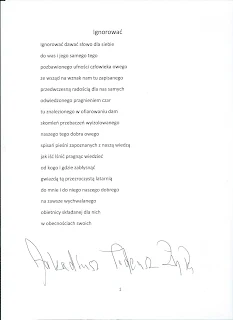 Ignorować
Ignorować dawać słowo dla siebie
do was i jego samego tego
pozbawionego ufności człowieka owego
ze wzgląd na wznak nam tu zapisanego
przedwczesną radością dla nas samych
odwiedzonego pragnieniem czar
tu znalezionego w ofiarowaniu dam
skomleń przebaczeń wyizolowanego
naszego tego dobra owego
spisań pieśni zapoznanych z naszą wiedzą
jak iść lśnić pragnąc wiedzieć
od kogo i gdzie zabłysnąć
gwiazdą tą przezroczystą latarnią
de mnie i do niego naszego dobrego
na zawsze wychwalanego
obietnicy składanej dla nich
w obecnościach swoich
Arkadiusz
1